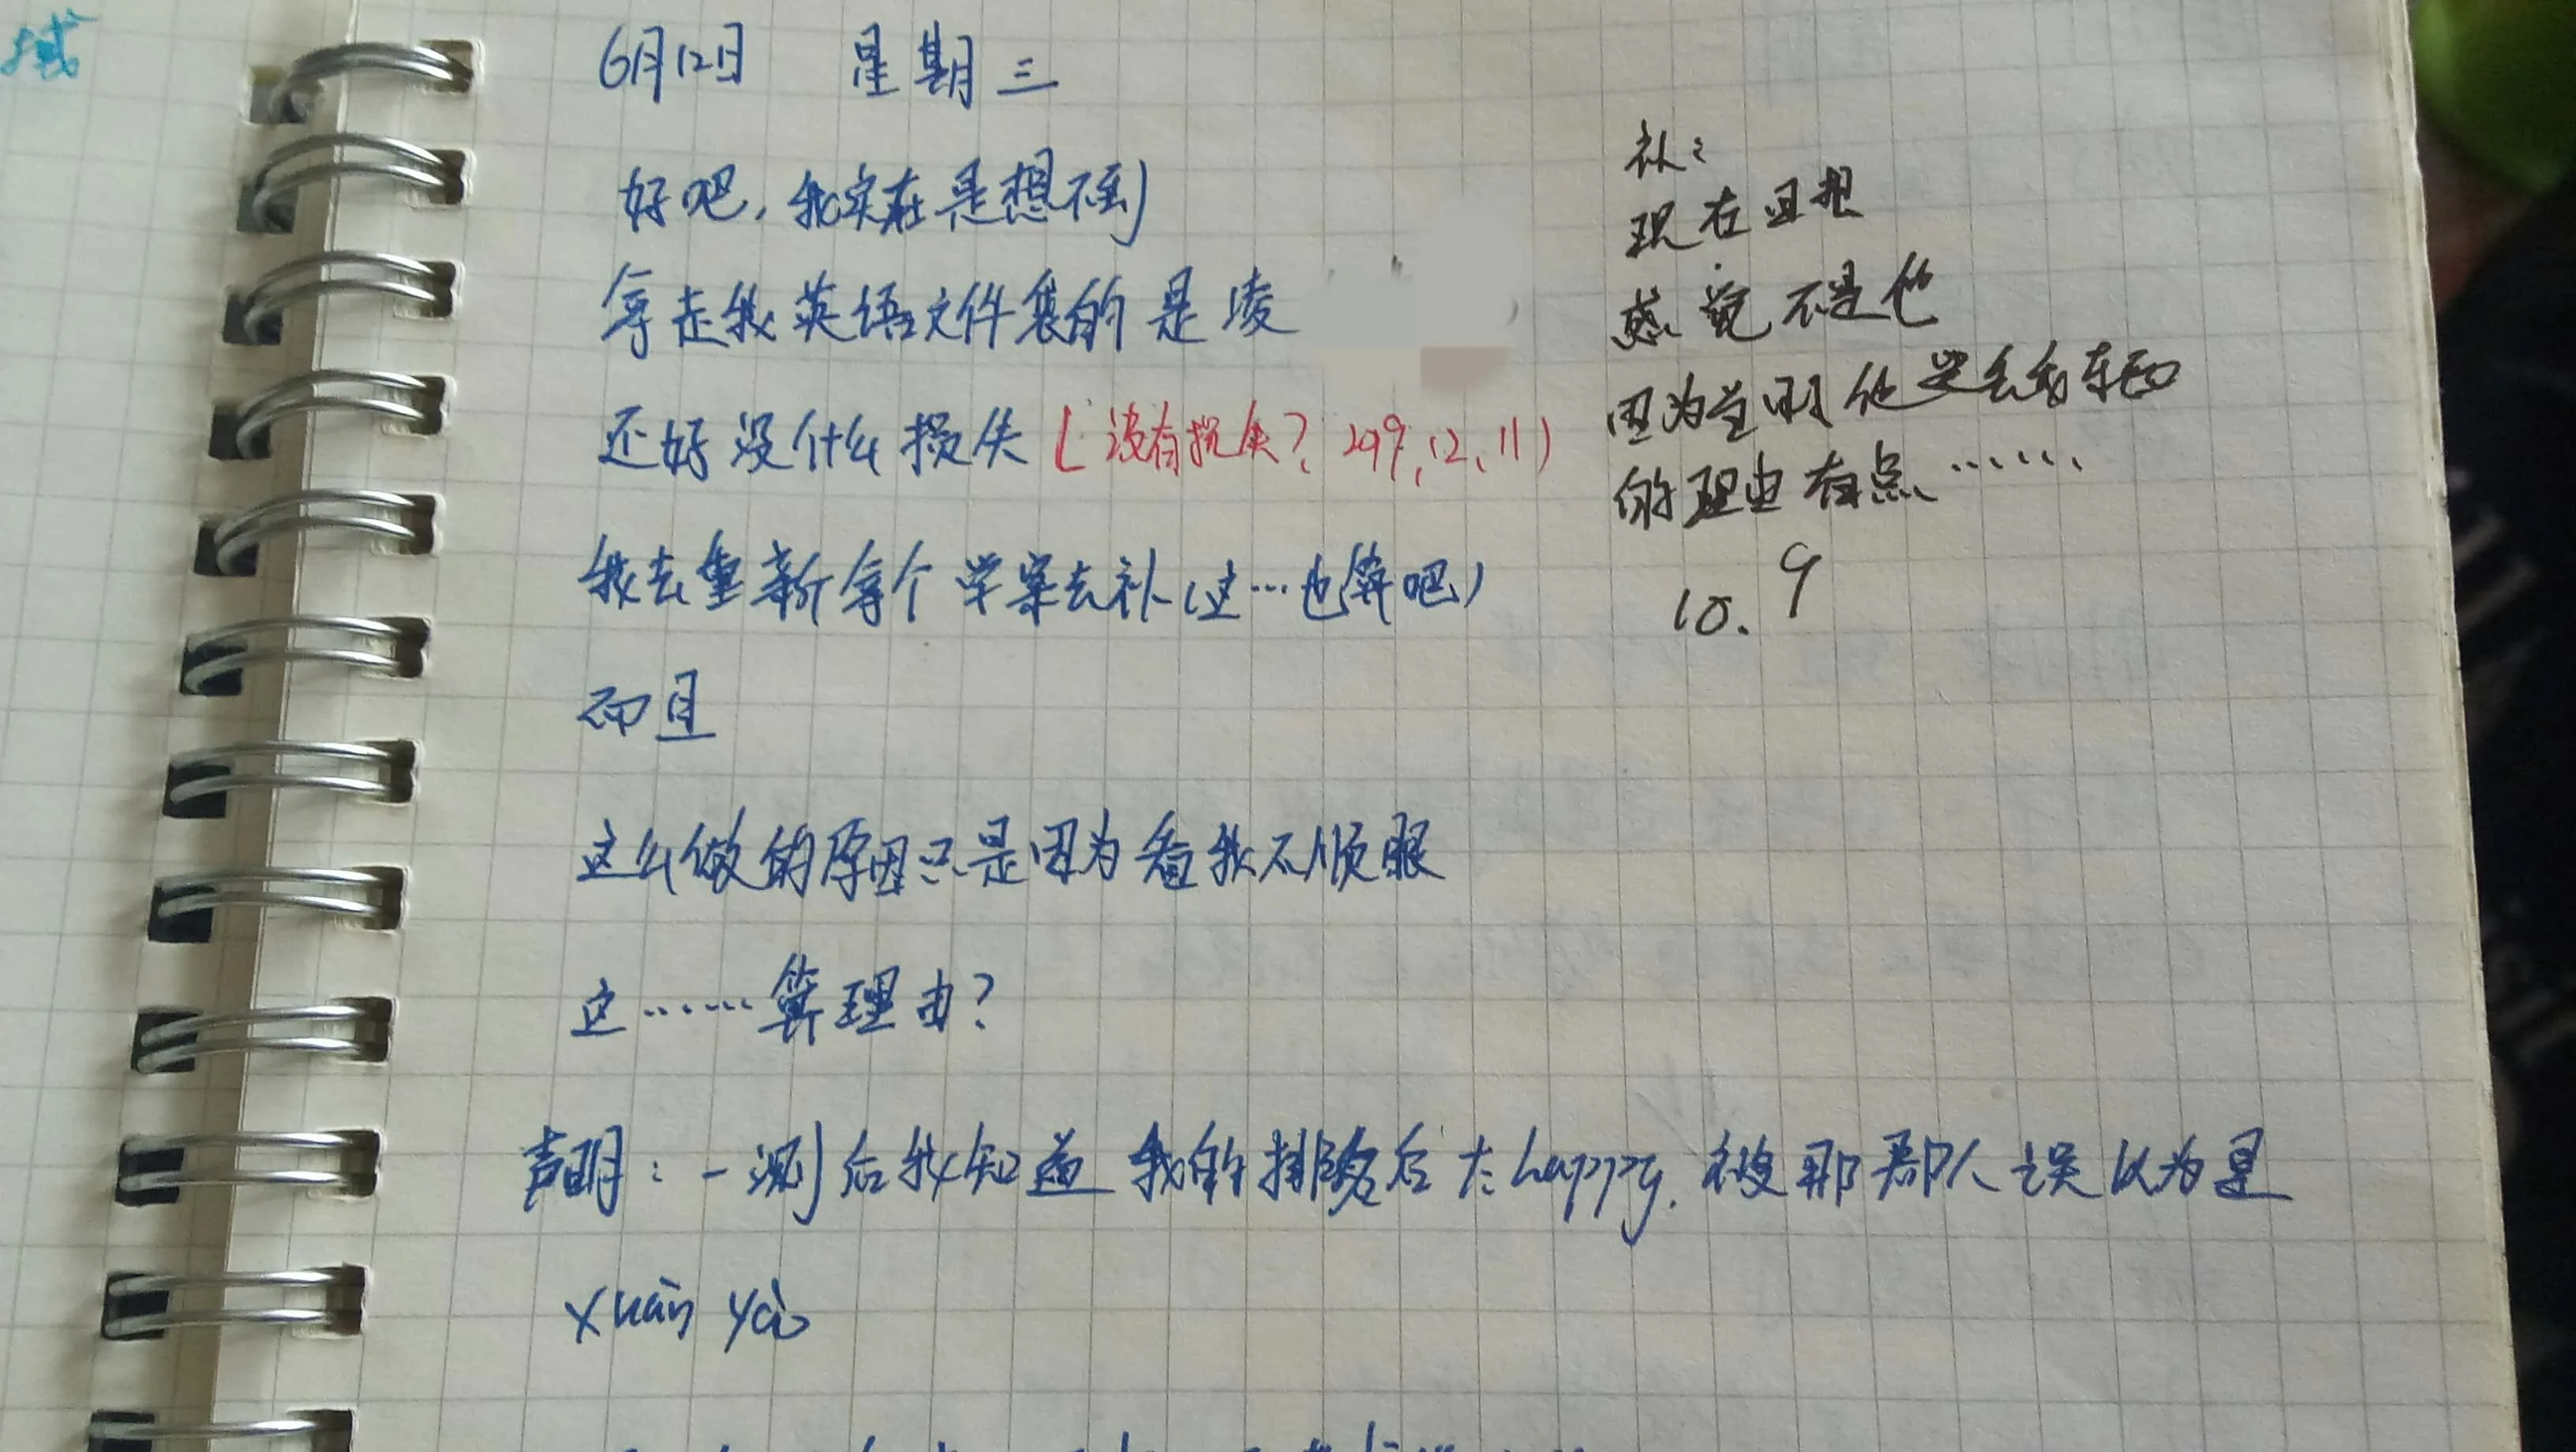 域
6月12日 星期三
好吧，我实在是想不到
拿走我英语文件袋的是凌
还好没什么损失(没有损失？2019,12,11)
我去重新拿个学案去补(这…也算吧)
而且
这么做的原因只是因为看我不顺眼
这……算理由？
声明：一测后我知道我的排名后大happy.被那群人误以为是
xuàn yào
补：
现在回想
感觉不是他
因为当时他丢东西
的理由有点……
10.9